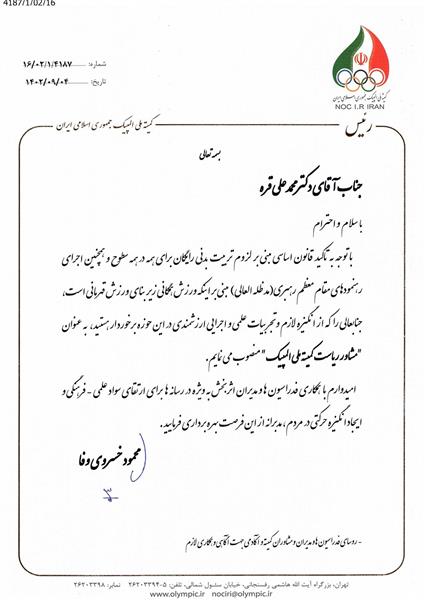 4187/1/02/16
شماره: ۱۶/۰۲/۱/۴۱۸۷
تاریخ: ۱۴۰۲/۰۹/۰۴
کمیته ملی المپیک جمهوری اسلامی ایران
NOC I.R IRAN
رئیس
کمیته ملی المپیک جمهوری اسلامی ایران
بسمه تعالی
جناب آقای دکتر محمد علی قره
با سلام و احترام
با توجه به تاکید قانون اساسی مبنی بر لزوم تربیت بدنی رایگان برای همه در همه سطوح و همچنین اجرای
رهنمودهای مقام معظم رهبری(مدظله العالی) مبنی بر اینکه ورزش همگانی زیر بنای ورزش قهرمانی است،
جنابعالی را که از انگیزه لازم و تجربیات علمی و اجرایی ارزشمندی در این حوزه برخوردار هستید، به عنوان
"مشاور ریاست کمیته ملی المپیک" منصوب می نمایم.
امیدوارم با همکاری فدراسیون ها و مدیران اثر بخش به ویژه در رسانه ها برای ارتقای سواد علمی - فرهنگی و
ایجاد انگیزه حرکتی در مردم، مدبرانه از این فرصت بهره برداری فرمایید.
محمود خسروی وفا
- روسای فدراسیون ها و مدیران و مشاوران کمیته و آکادمی جهت آگاهی و همکاری لازم
تهران، بزرگراه آیت الله هاشمی رفسنجانی، خیابان سئول شمالی، تلفن: ۵-۲۶۲۰۳۳۹۴ نمابر: ۲۶۲۰۳۳۹۸
www.olympic.ir nociri@olympic.ir